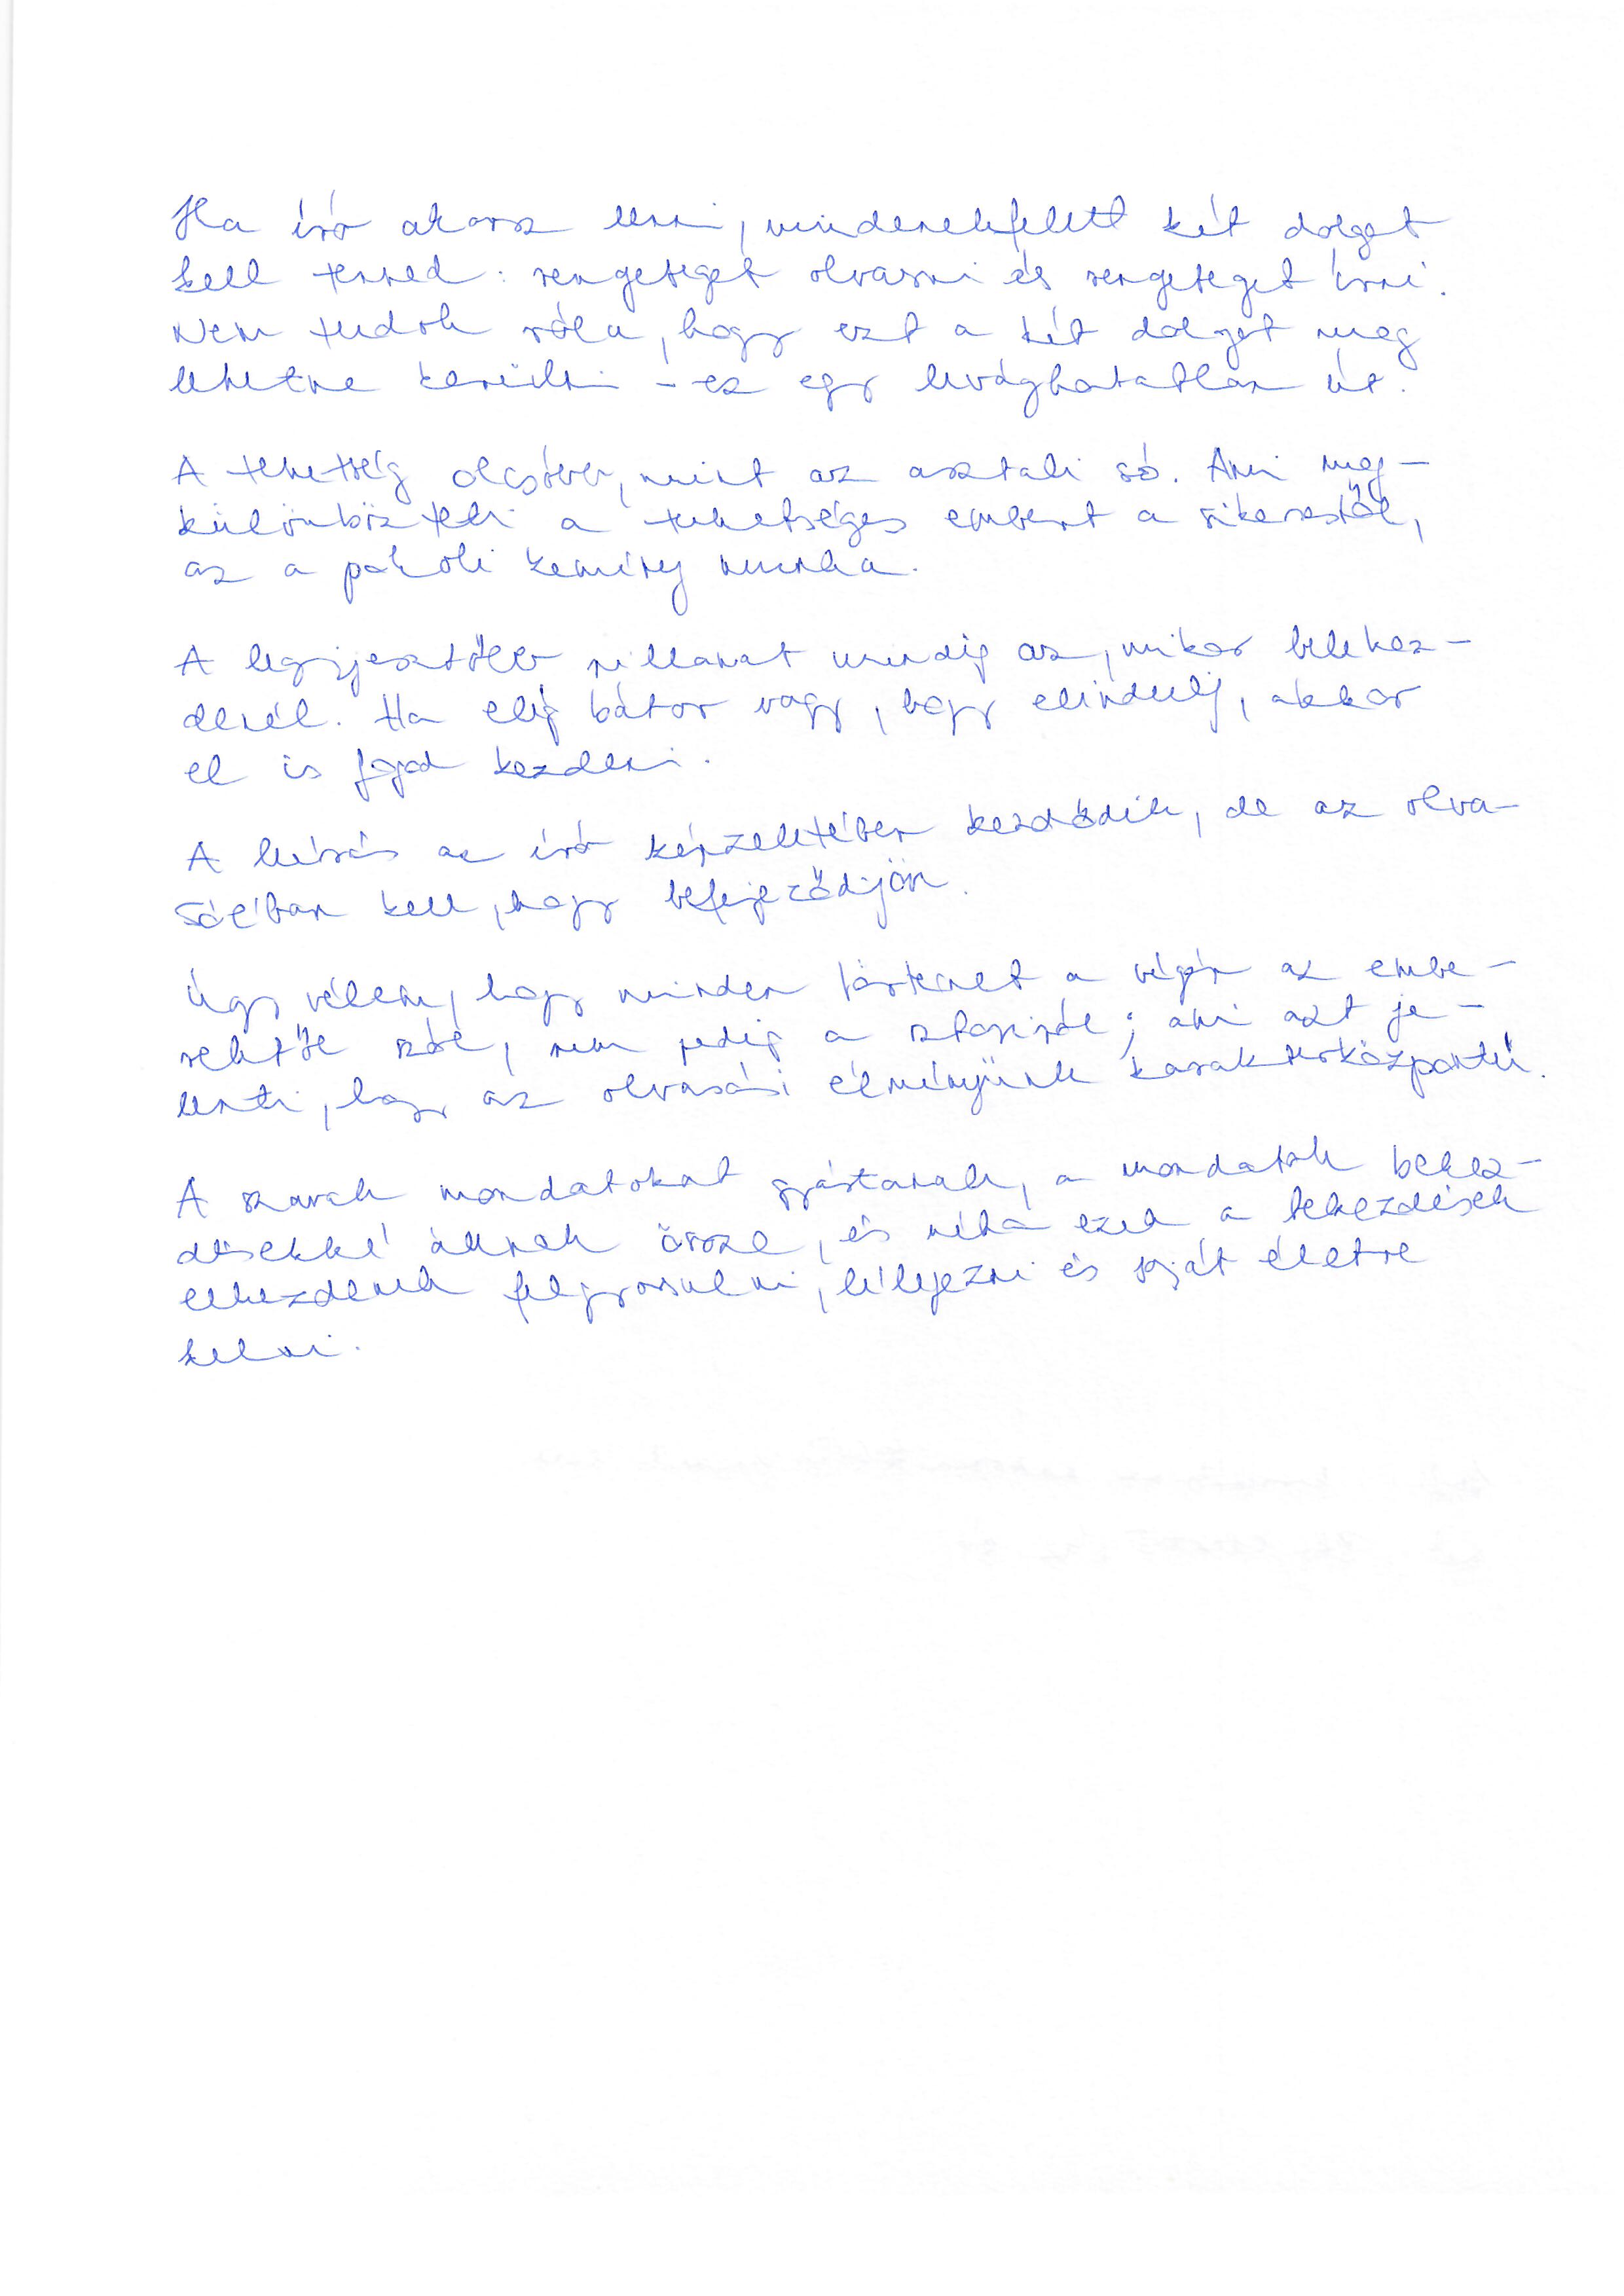 Ha író akarsz lenni, mindenekfelett két dolgot
kell tenned: rengeteget olvasni és rengeteget írni.
Nem tudok róla, hogy ezt a két dolgot meg
lehetne kerülni – ez egy levághatatlan út.
A tehetség olcsóbb, mint az asztali só. Ami meg-
különbözteti a tehetséges embert a sikerestől,
az a pokoli kemény munka.
A legijesztőbb pillanat mindig az, mikor belekez-
denél. Ha elég bátor vagy, hogy elindulj, akkor
el is fogod kezdeni.
A leírás az író képzeletében kezdődik, de az olva-
sóéban kell, hogy befejeződjön.
Úgy vélem, hogy minden történet a végén az embe-
rektől szól, nem pedig a sztoriról; ami azt je-
lenti, hogy az olvasási élményünk karakterközpontú.
A szavak mondatokat gyártanak, a mondatok bekez-
désekké állnak össze, és néha ezek a bekezdések
elkezdenek felgyorsulni, lélegezni és saját életre
kelni.